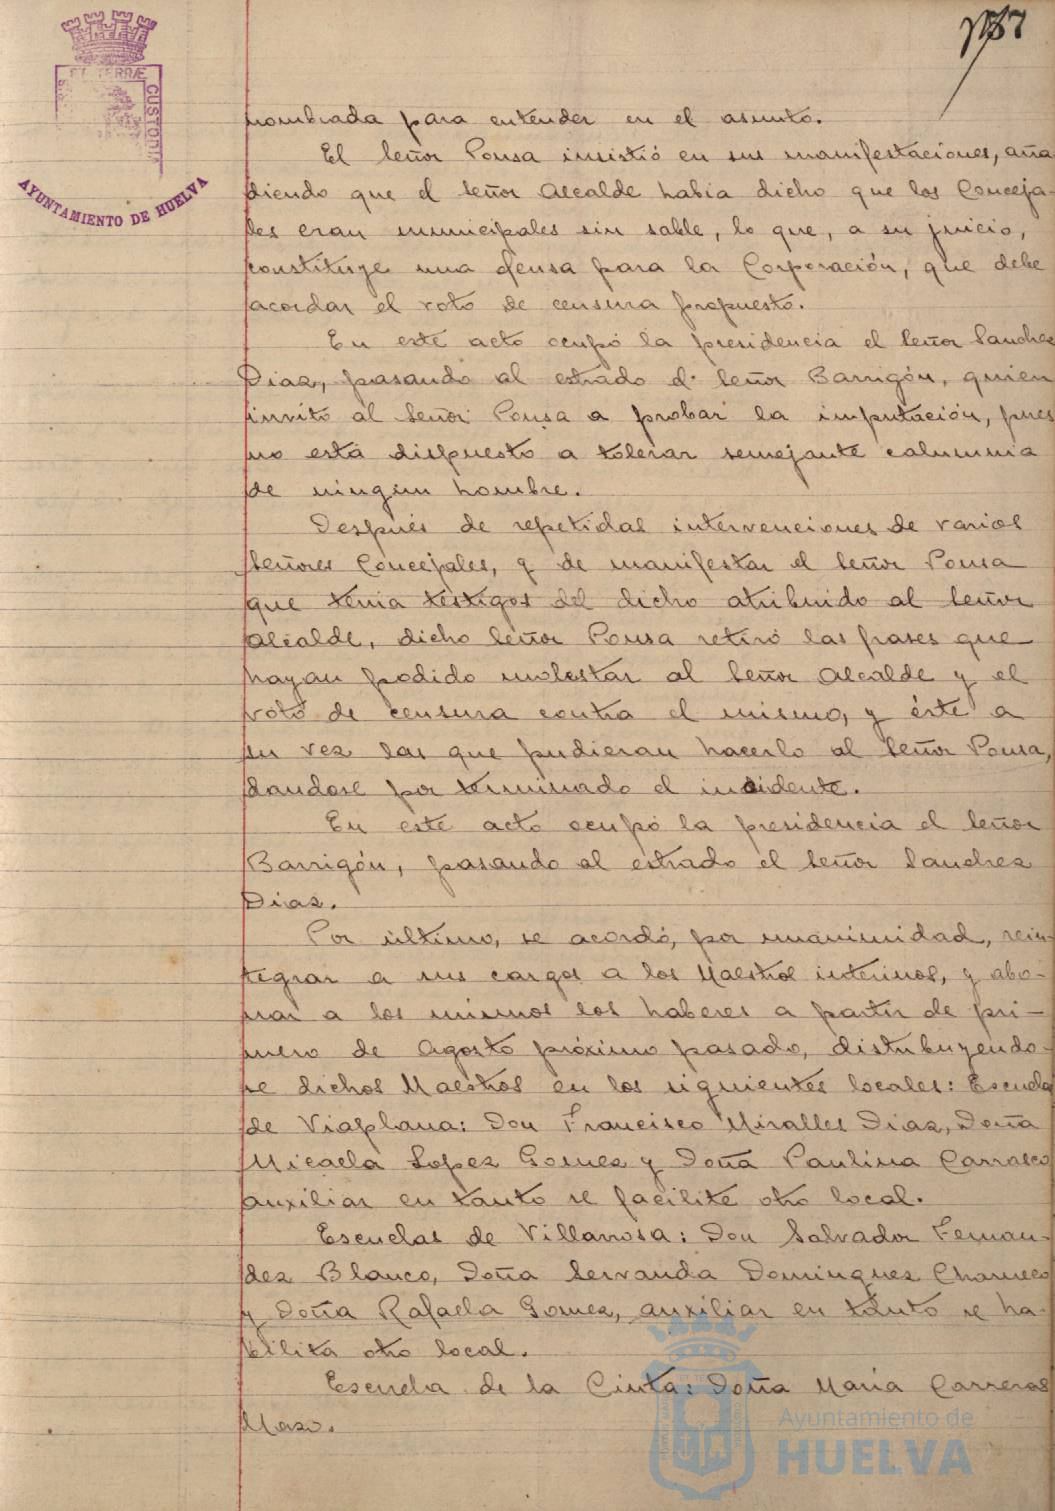 187
ET TERRÆ CUSTODIA
AYUNTAMIENTO DE HUELVA
nombrada para entender en el asunto.
El Señor Ponsa insistió en sus manifestaciones, aña
diendo que el Señor Alcalde habia dicho que los Conceja-
les eran municipales sin sable, lo que, a su juicio,
constituye una ofensa para la Corporación, que debe
acordar el voto de censura propuesto.
En este acto ocupó la presidencia el Señor Sanchez
Diaz, pasando al estrado el Señor Barrigón, quien
invitó al Señor Ponsa a probar la imputación, pues
no está dispuesto a tolerar semejante calumnia
de ningun hombre.
Después de repetidas intervenciones de varios
Señores Concejales, y de manifestar el Señor Ponsa
que tenia testigos del dicho atribuido al Señor
Alcalde, dicho Señor Ponsa retiró las frases que
hayan podido molestar al Señor Alcalde y el
voto de censura contra el mismo, y éste a
su vez las que pudieran hacerlo al Señor Ponsa,
dandose por terminado el incidente.
En este acto ocupó la presidencia el Señor
Barrigón, pasando al estrado el Señor Sanchez
Diaz.
Por último, se acordó, por unanimidad, rein-
tegrar a sus cargos a los Maestros interinos, y abo-
nar a los mismos los haberes a partir de pri-
mero de Agosto próximo pasado, distribuyendo-
se dichos Maestros en los siguientes locales: Escuela
de Viaplana: Don Francisco Miralles Diaz, Doña
Micaela Lopez Gomez y Doña Paulina Carrasco
auxiliar en tanto se facilite otro local.
Escuelas de Villarrosa: Don Salvador Fernan-
dez Blanco, Doña Servanda Dominguez Charneco
y Doña Rafaela Gomez, auxiliar en tanto se ha-
bilita otro local.
Escuela de la Cinta: Doña Maria Carreras
Mazo.
Ayuntamiento de
HUELVA